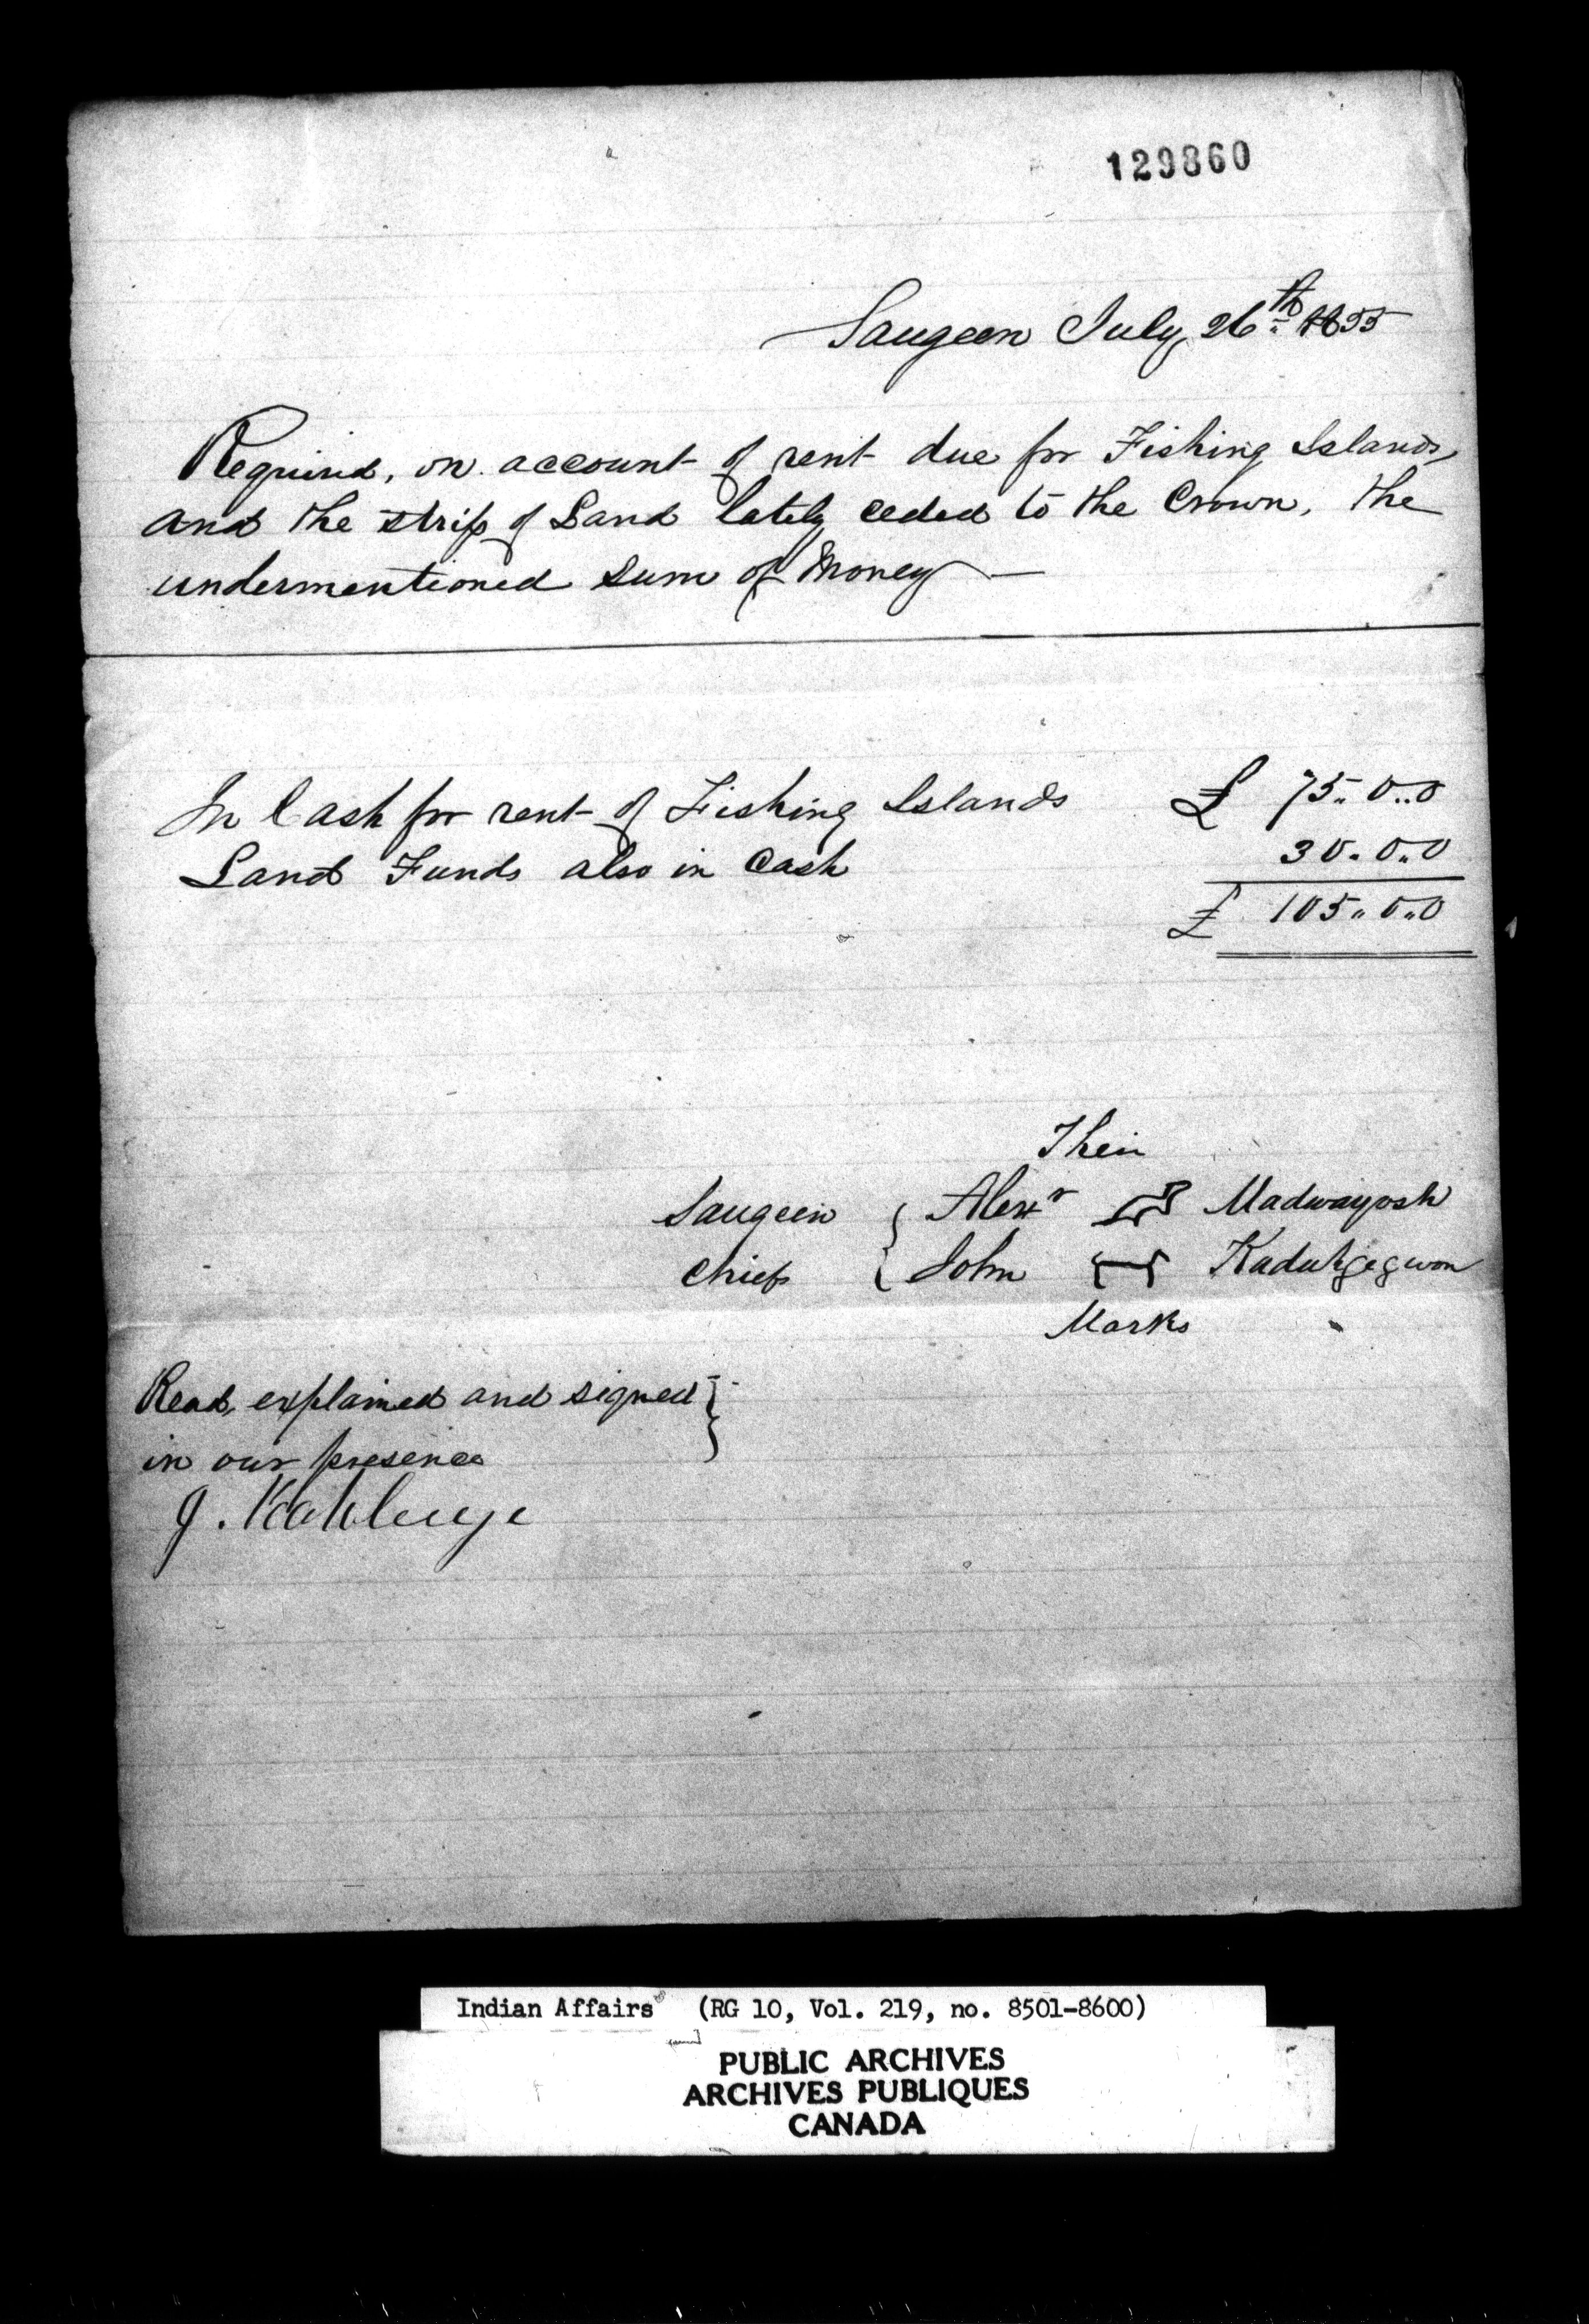 129860
Saugeen July 26th 1855
Required, on account of rent due for Fishing Islands,
and the strip of Land lately ceded to the Crown, the
undermentioned sum of Money —
In Cash for rent of Fishing Islands £ 75..0..0
Land Funds also in Cash 30..0..0
£ 105..0..0
Their
Saugeen { Alexr Madwayosh
Chiefs { John Kaduhgegwon
Marks
Read, explained and signed }
in our presence
J.
Indian Affairs (RG 10, Vol. 219, no. 8501-8600)
PUBLIC ARCHIVES
ARCHIVES PUBLIQUES
CANADA